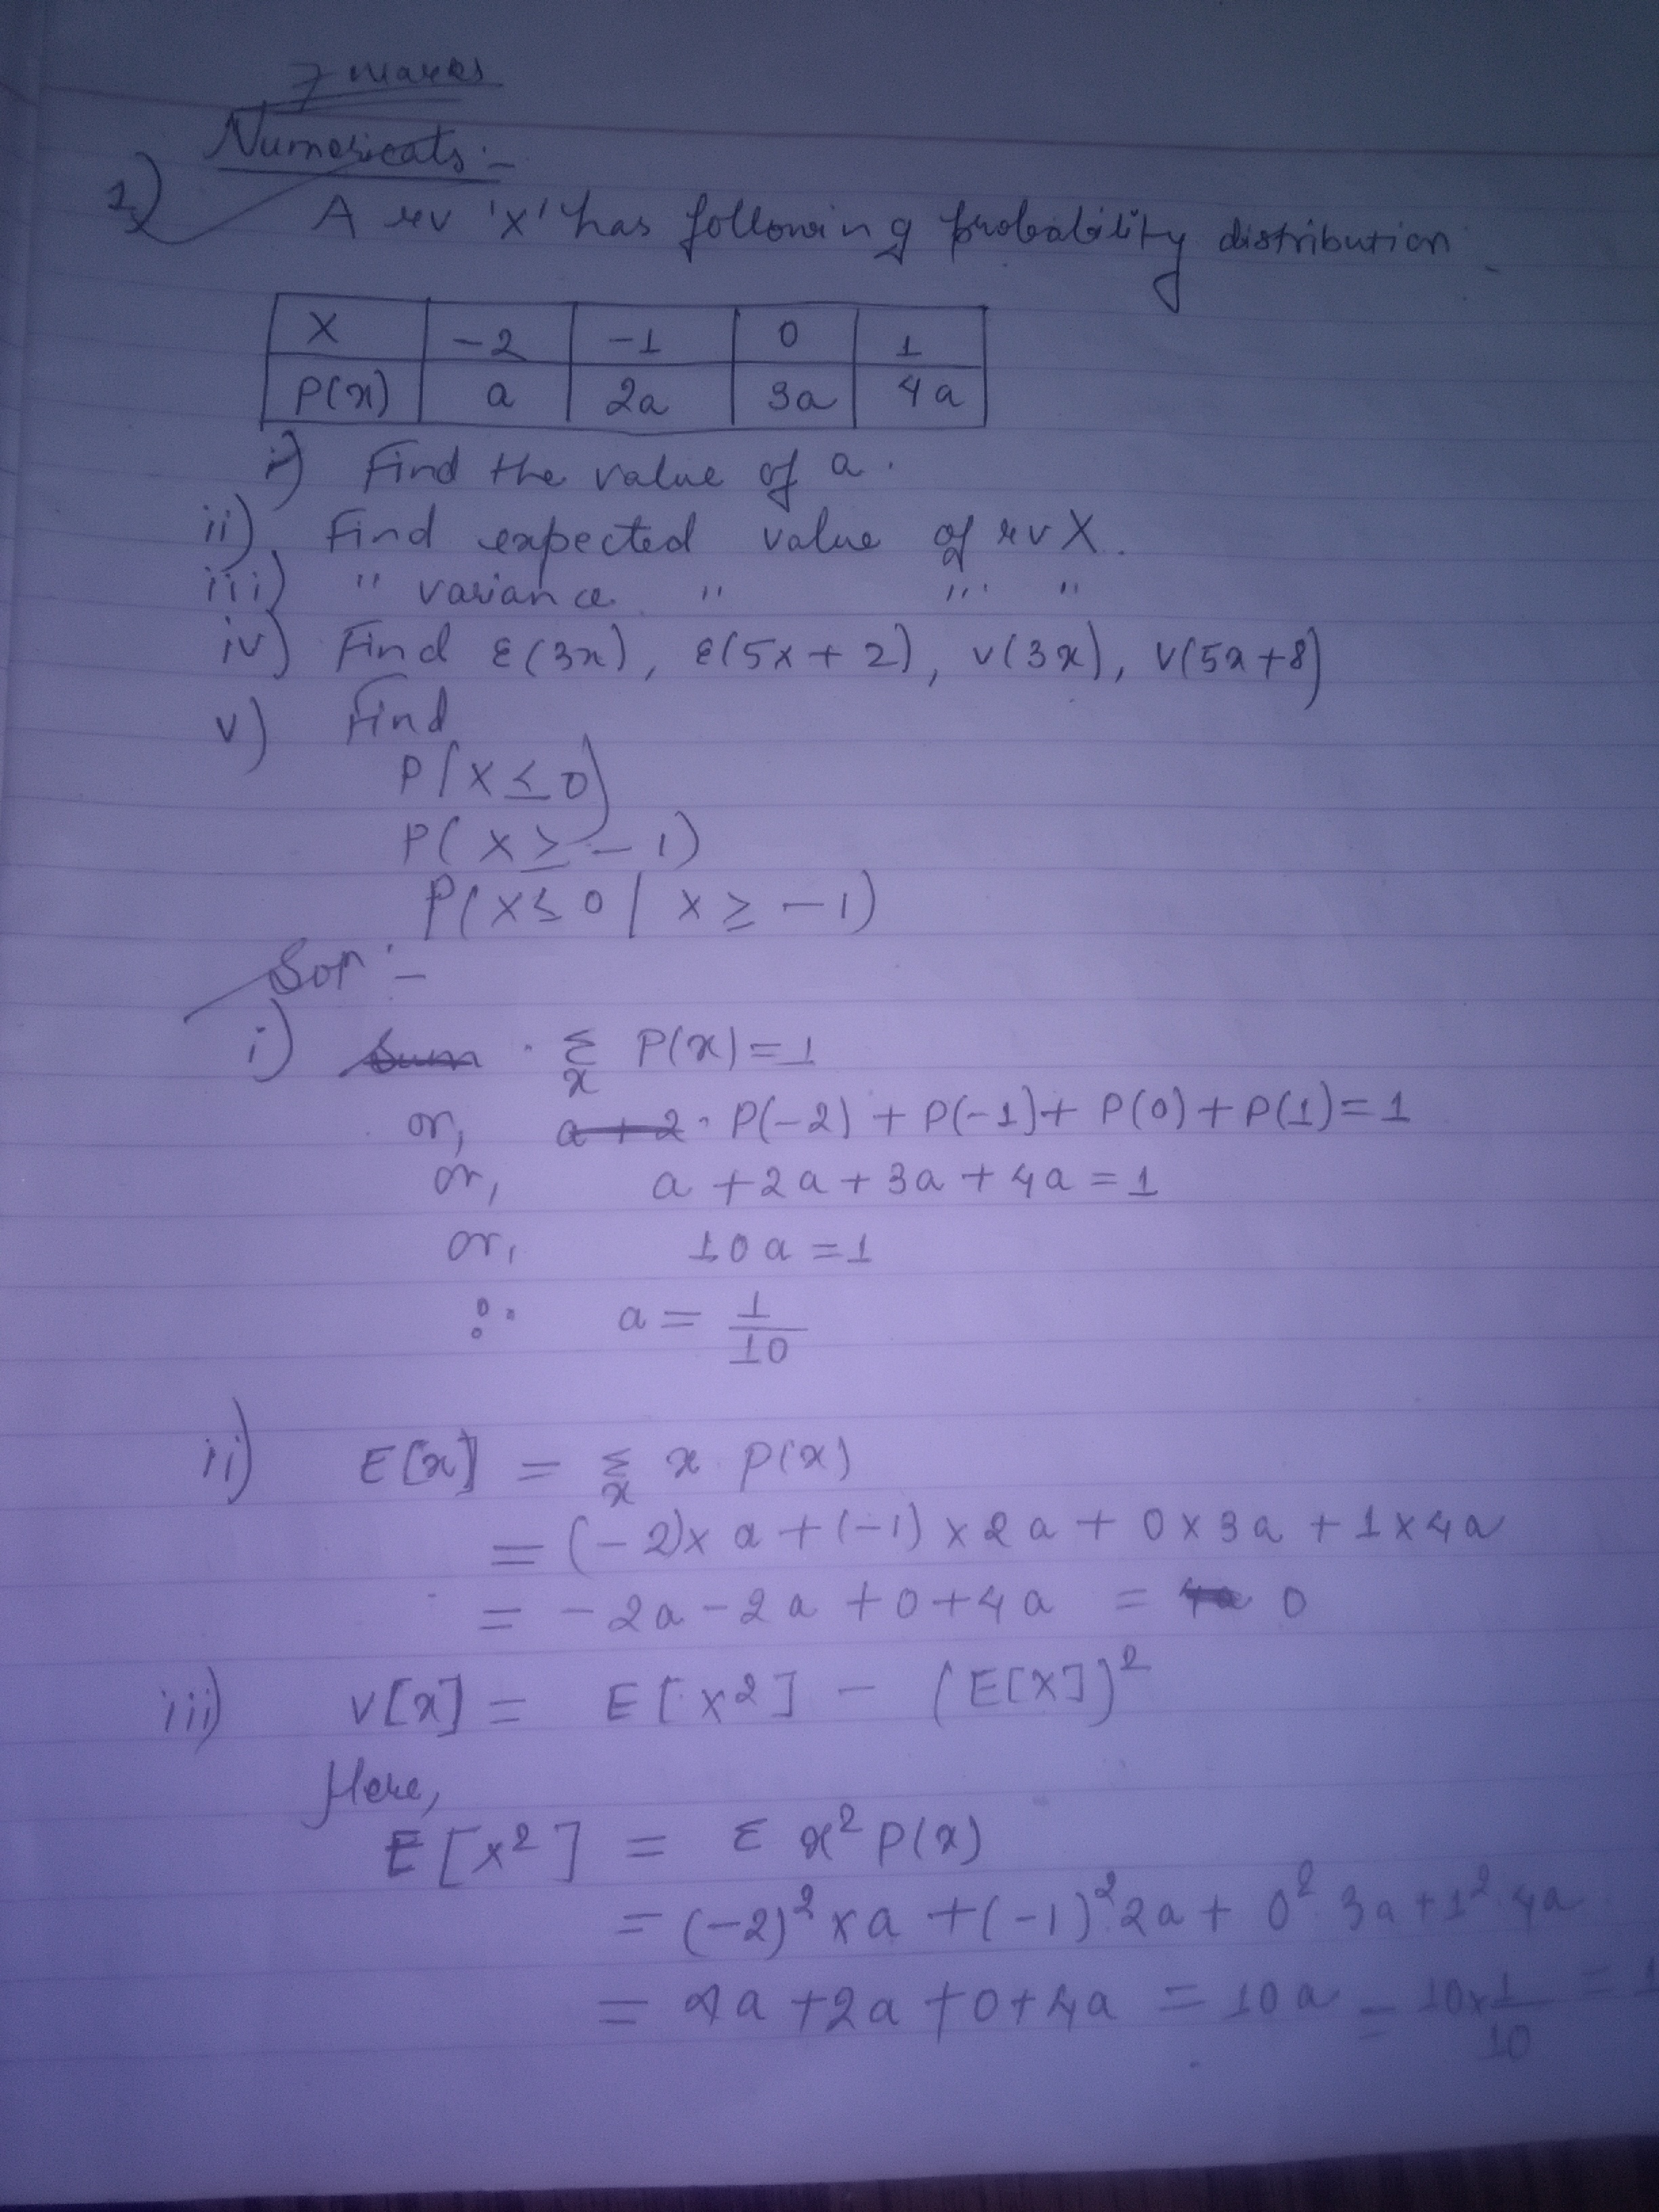 7 marks
Numericals :-
1) A rv 'X' has following probability distribution
X -2 -1 0 1
P(x) a 2a 3a 4a
i) Find the value of a.
ii) Find expected value of rv X.
iii) " variance " " "
iv) Find E(3x), E(5x + 2), V(3x), V(5x+8)
v) Find
P(X ≤ 0)
P(X ≥ -1)
P(X ≤ 0 | X ≥ -1)
Solⁿ :-
i) Sum Σx P(x) = 1
or, a + 2 P(-2) + P(-1) + P(0) + P(1) = 1
or, a + 2a + 3a + 4a = 1
or, 10a = 1
∴ a = 1/10
ii) E[x] = Σx x P(x)
= (-2) × a + (-1) × 2a + 0 × 3a + 1 × 4a
= -2a - 2a + 0 + 4a = 4a 0
iii) V[x] = E[X²] - (E[X])²
Here,
E[x²] = Σ x² P(x)
= (-2)² × a + (-1)² 2a + 0² 3a + 1² 4a
= 4a + 2a + 0 + 4a = 10a = 10×1/10 = 1